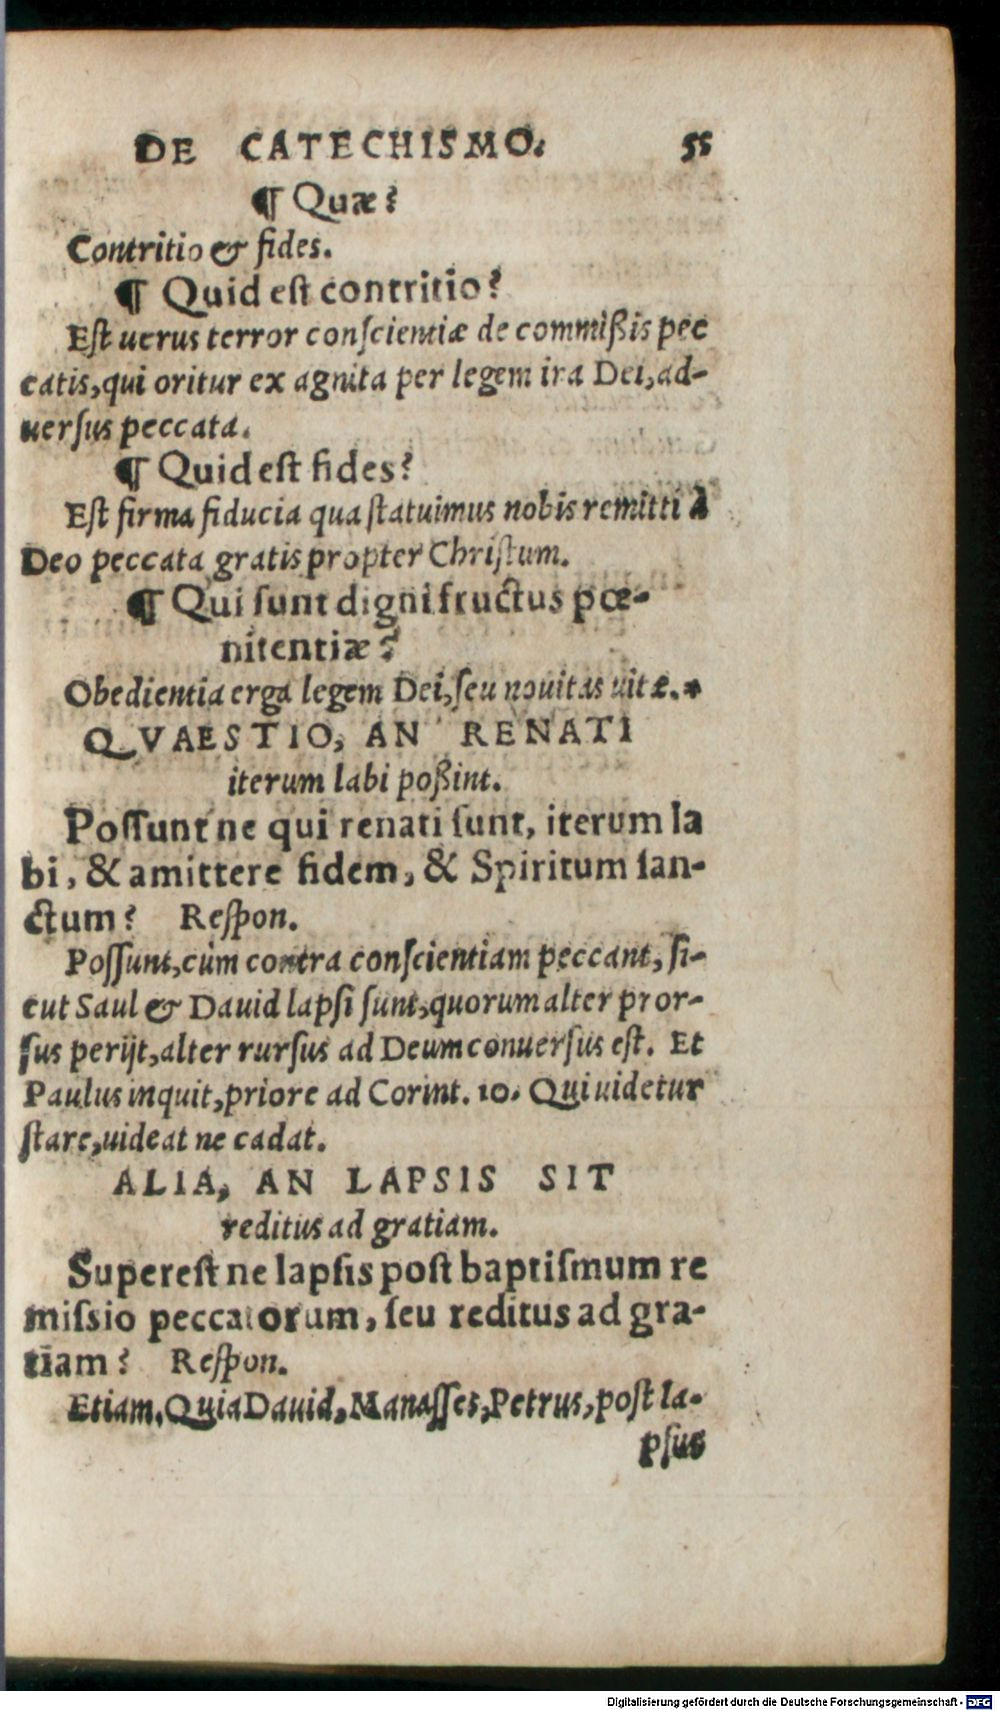 DE CATECHISMO. 55
¶ Quæ?
Contritio & fides.
¶ Quid eſt contritio?
Eſt uerus terror conſcientiæ de commißis pec
catis, qui oritur ex agnita per legem ira Dei, ad-
uerſus peccata.
¶ Quid eſt fides?
Eſt firma fiducia qua ſtatuimus nobis remitti à
Deo peccata gratis propter Chriſtum.
¶ Qui ſunt digni fructus pœ-
nitentiæ?
Obedientia erga legem Dei, ſeu nouitas uitæ.*
QVAESTIO, AN RENATI
iterum labi poßint.
Poſſunt ne qui renati ſunt, iterum la
bi, & amittere fidem, & Spiritum ſan-
ctum? Reſpon.
Poſſunt, cùm contra conſcientiam peccant, ſi-
cut Saul & Dauid lapſi ſunt, quorum alter pror-
ſus perijt, alter rurſus ad Deum conuerſus eſt. Et
Paulus inquit, priore ad Corint. 10. Qui uidetur
ſtare, uideat ne cadat.
ALIA, AN LAPSIS SIT
reditus ad gratiam.
Supereſt ne lapſis poſt baptiſmum re
miſsio peccatorum, ſeu reditus ad gra-
tiam? Reſpon.
Etiam, Quia Dauid, Manaſſes, Petrus, poſt la-
pſus
Digitalisierung gefördert durch die Deutsche Forschungsgemeinschaft - DFG